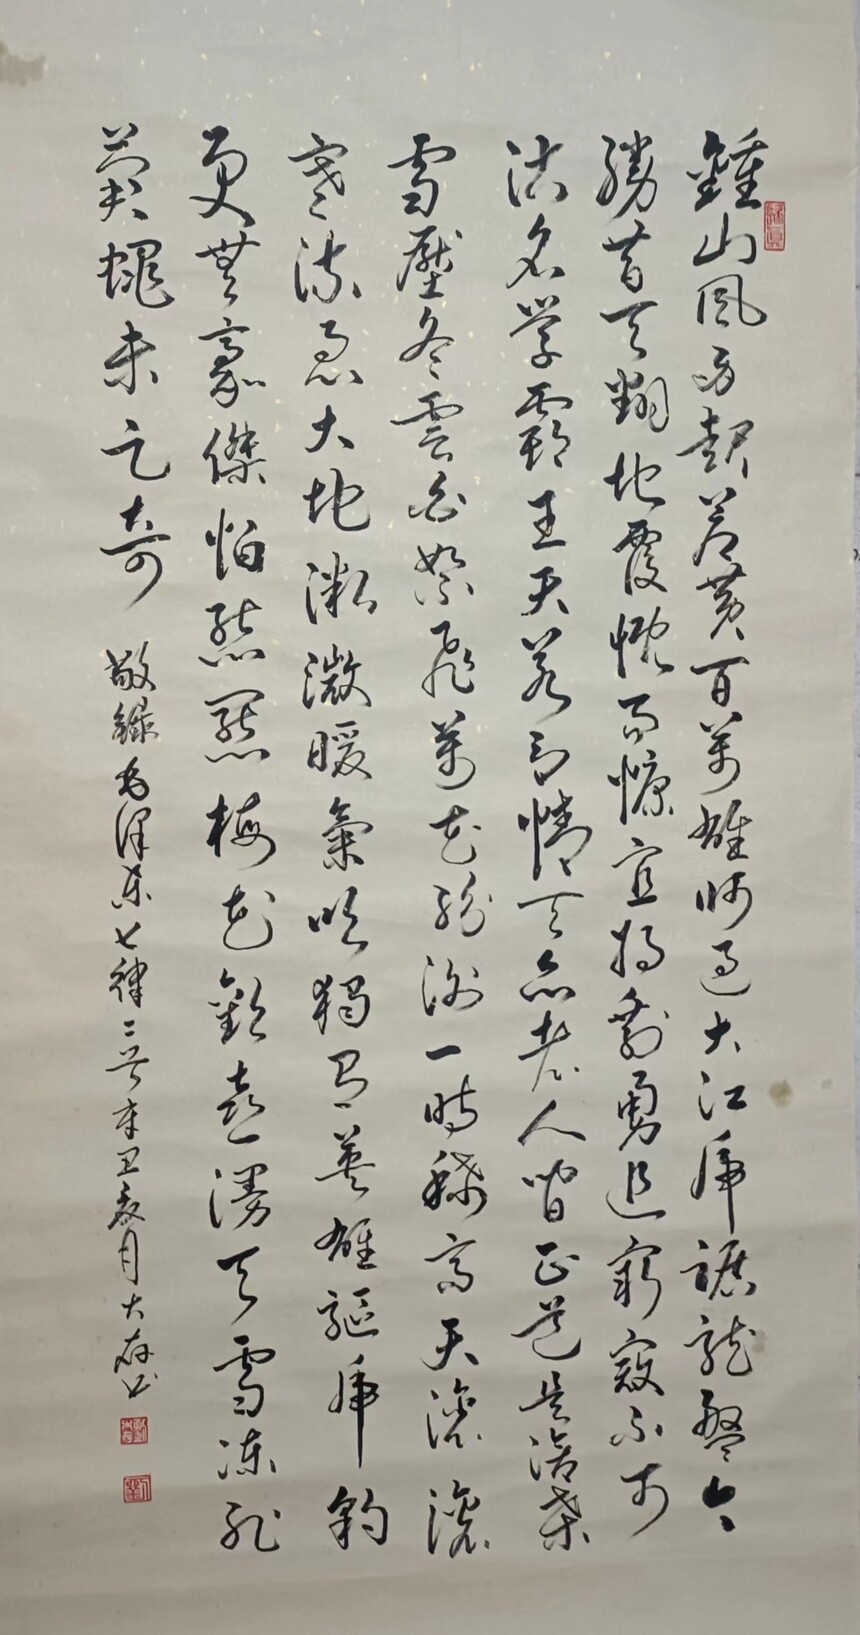 鍾山風雨起蒼黄百萬雄师过大江虎踞龍盤今
勝昔天翻地覆慨而慷宜将剩勇追窮寇不可
沽名学霸王天若有情天亦老人间正道是滄桑
雪壓冬雲白絮飛萬花纷谢一时稀高天滚滚
寒流急大地微微暖氣吹獨有英雄驅虎豹
更無豪傑怕熊羆梅花歡喜漫天雪凍死
蒼蠅未足奇 敬錄毛泽东七律二首辛丑夏月大存书